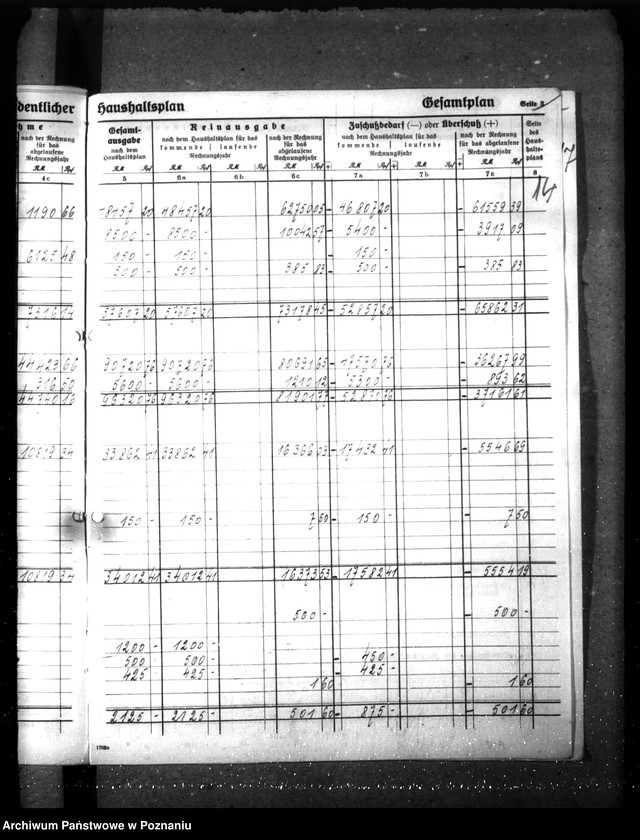 dentlicher Haushaltsplan Gesamtplan Seite 8
hme
nach der Rechnung für das abgelaufene Rechnungsjahr
Gesamt-ausgabe nach dem Haushaltsplan
Reinausgabe
nach dem Haushaltsplan für das kommende laufende Rechnungsjahr
nach der Rechnung für das abgelaufene Rechnungsjahr
Zuschußbedarf (—) oder Überschuß (+)
nach dem Haushaltsplan für das kommende laufende Rechnungsjahr
nach der Rechnung für das abgelaufene Rechnungsjahr
Seite des Haushaltsplans
RM Rpf RM Rpf RM Rpf RM Rpf RM Rpf + RM Rpf RM Rpf + RM Rpf
4c 5 6a 6b 6c 7a 7b 7c 8
14
1190 66 48457 20 48457 20 62750 05 - 46807 20 - 61559 39
8500 - 8500 - 10042 57 - 5400 - - 3917 09
6125 48 150 - 150 - - 150 -
500 - 500 - 385 83 - 500 - - 385 83
7316 14 57607 20 57607 20 73178 45 - 52857 20 - 65862 31
44423 66 90720 76 90720 76 80691 65 - 47570 76 - 36267 99
316 50 5600 - 5600 - 1210 12 - 5300 - - 893 62
44740 16 96320 76 96320 76 81901 77 - 52870 76 - 37161 61
10819 34 33862 41 33862 41 16366 03 - 17432 41 - 5546 69
150 - 150 - 7 50 - 150 - - 7 50
10819 34 34012 41 34012 41 16373 53 - 17582 41 - 5554 19
500 - - 500 -
1200 - 1200 -
500 - 500 - - 450 -
425 - 425 - - 425 -
1 60 - 1 60
2125 - 2125 - 501 60 - 875 - - 501 60
1702a
Archiwum Państwowe w Poznaniu